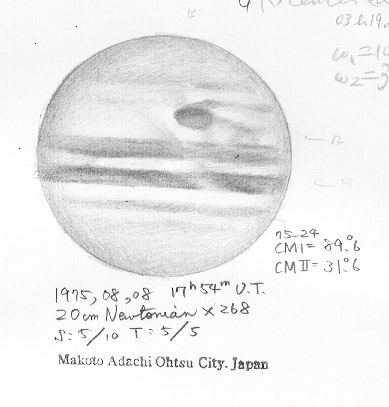 03h19m
ω1=10
ω2=3
75-24
CMI= 89.°6
CMII= 31.°6
1975, 08, 08 17h 54m U.T.
20cm Newtonian × 268
S: 5/10 T: 5/5
Makoto Adachi Ohtsu City. Japan